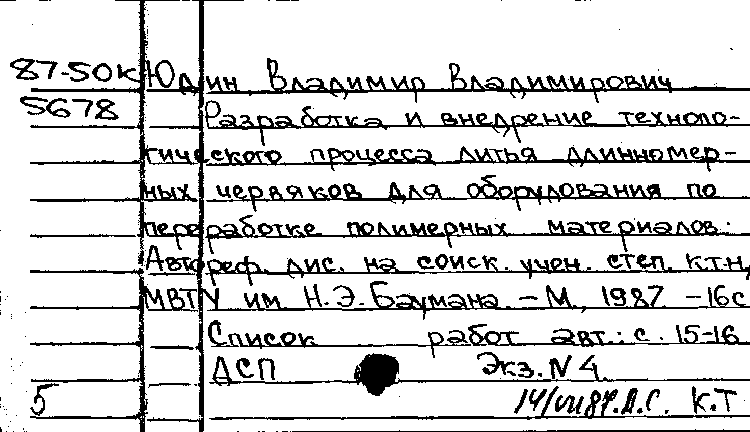 87-50к Юдин, Владимир Владимирович
5678 Разработка и внедрение техноло-
гического процесса литья длинномер-
ных червяков для оборудования по
переработке полимерных материалов:
Автореф. дис. на соиск. учен. степ. к.т.н,
МВТУ им. Н.Э.Баумана. - М., 1987 - 16с
Список работ авт.: с. 15-16
ДСП Экз. N 4
5 14/VII87. К.Т